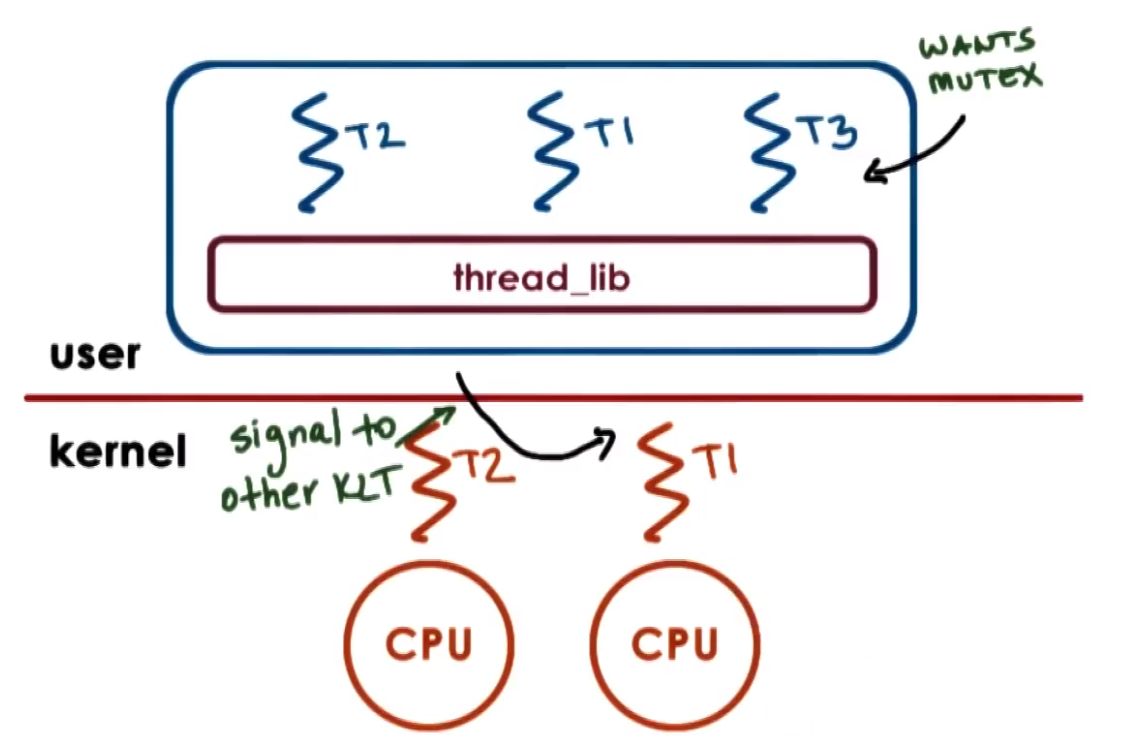 WANTS
MUTEX
T2
T1
T3
thread_lib
user
kernel
signal to
other KLT
T2
T1
CPU
CPU